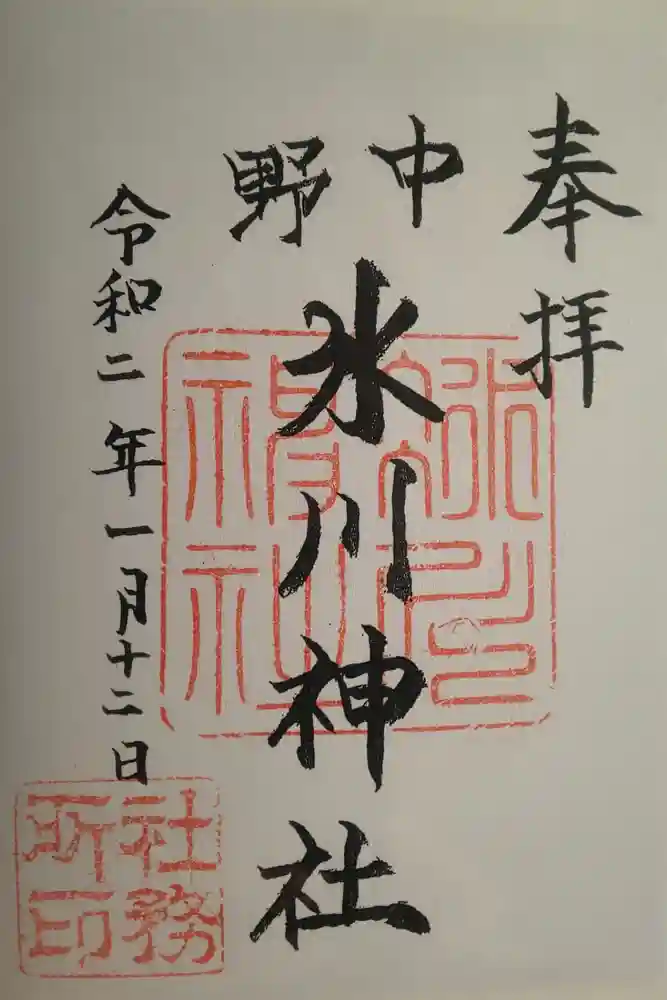 奉拝
中野
氷川神社
令和二年一月十二日
社務
所印